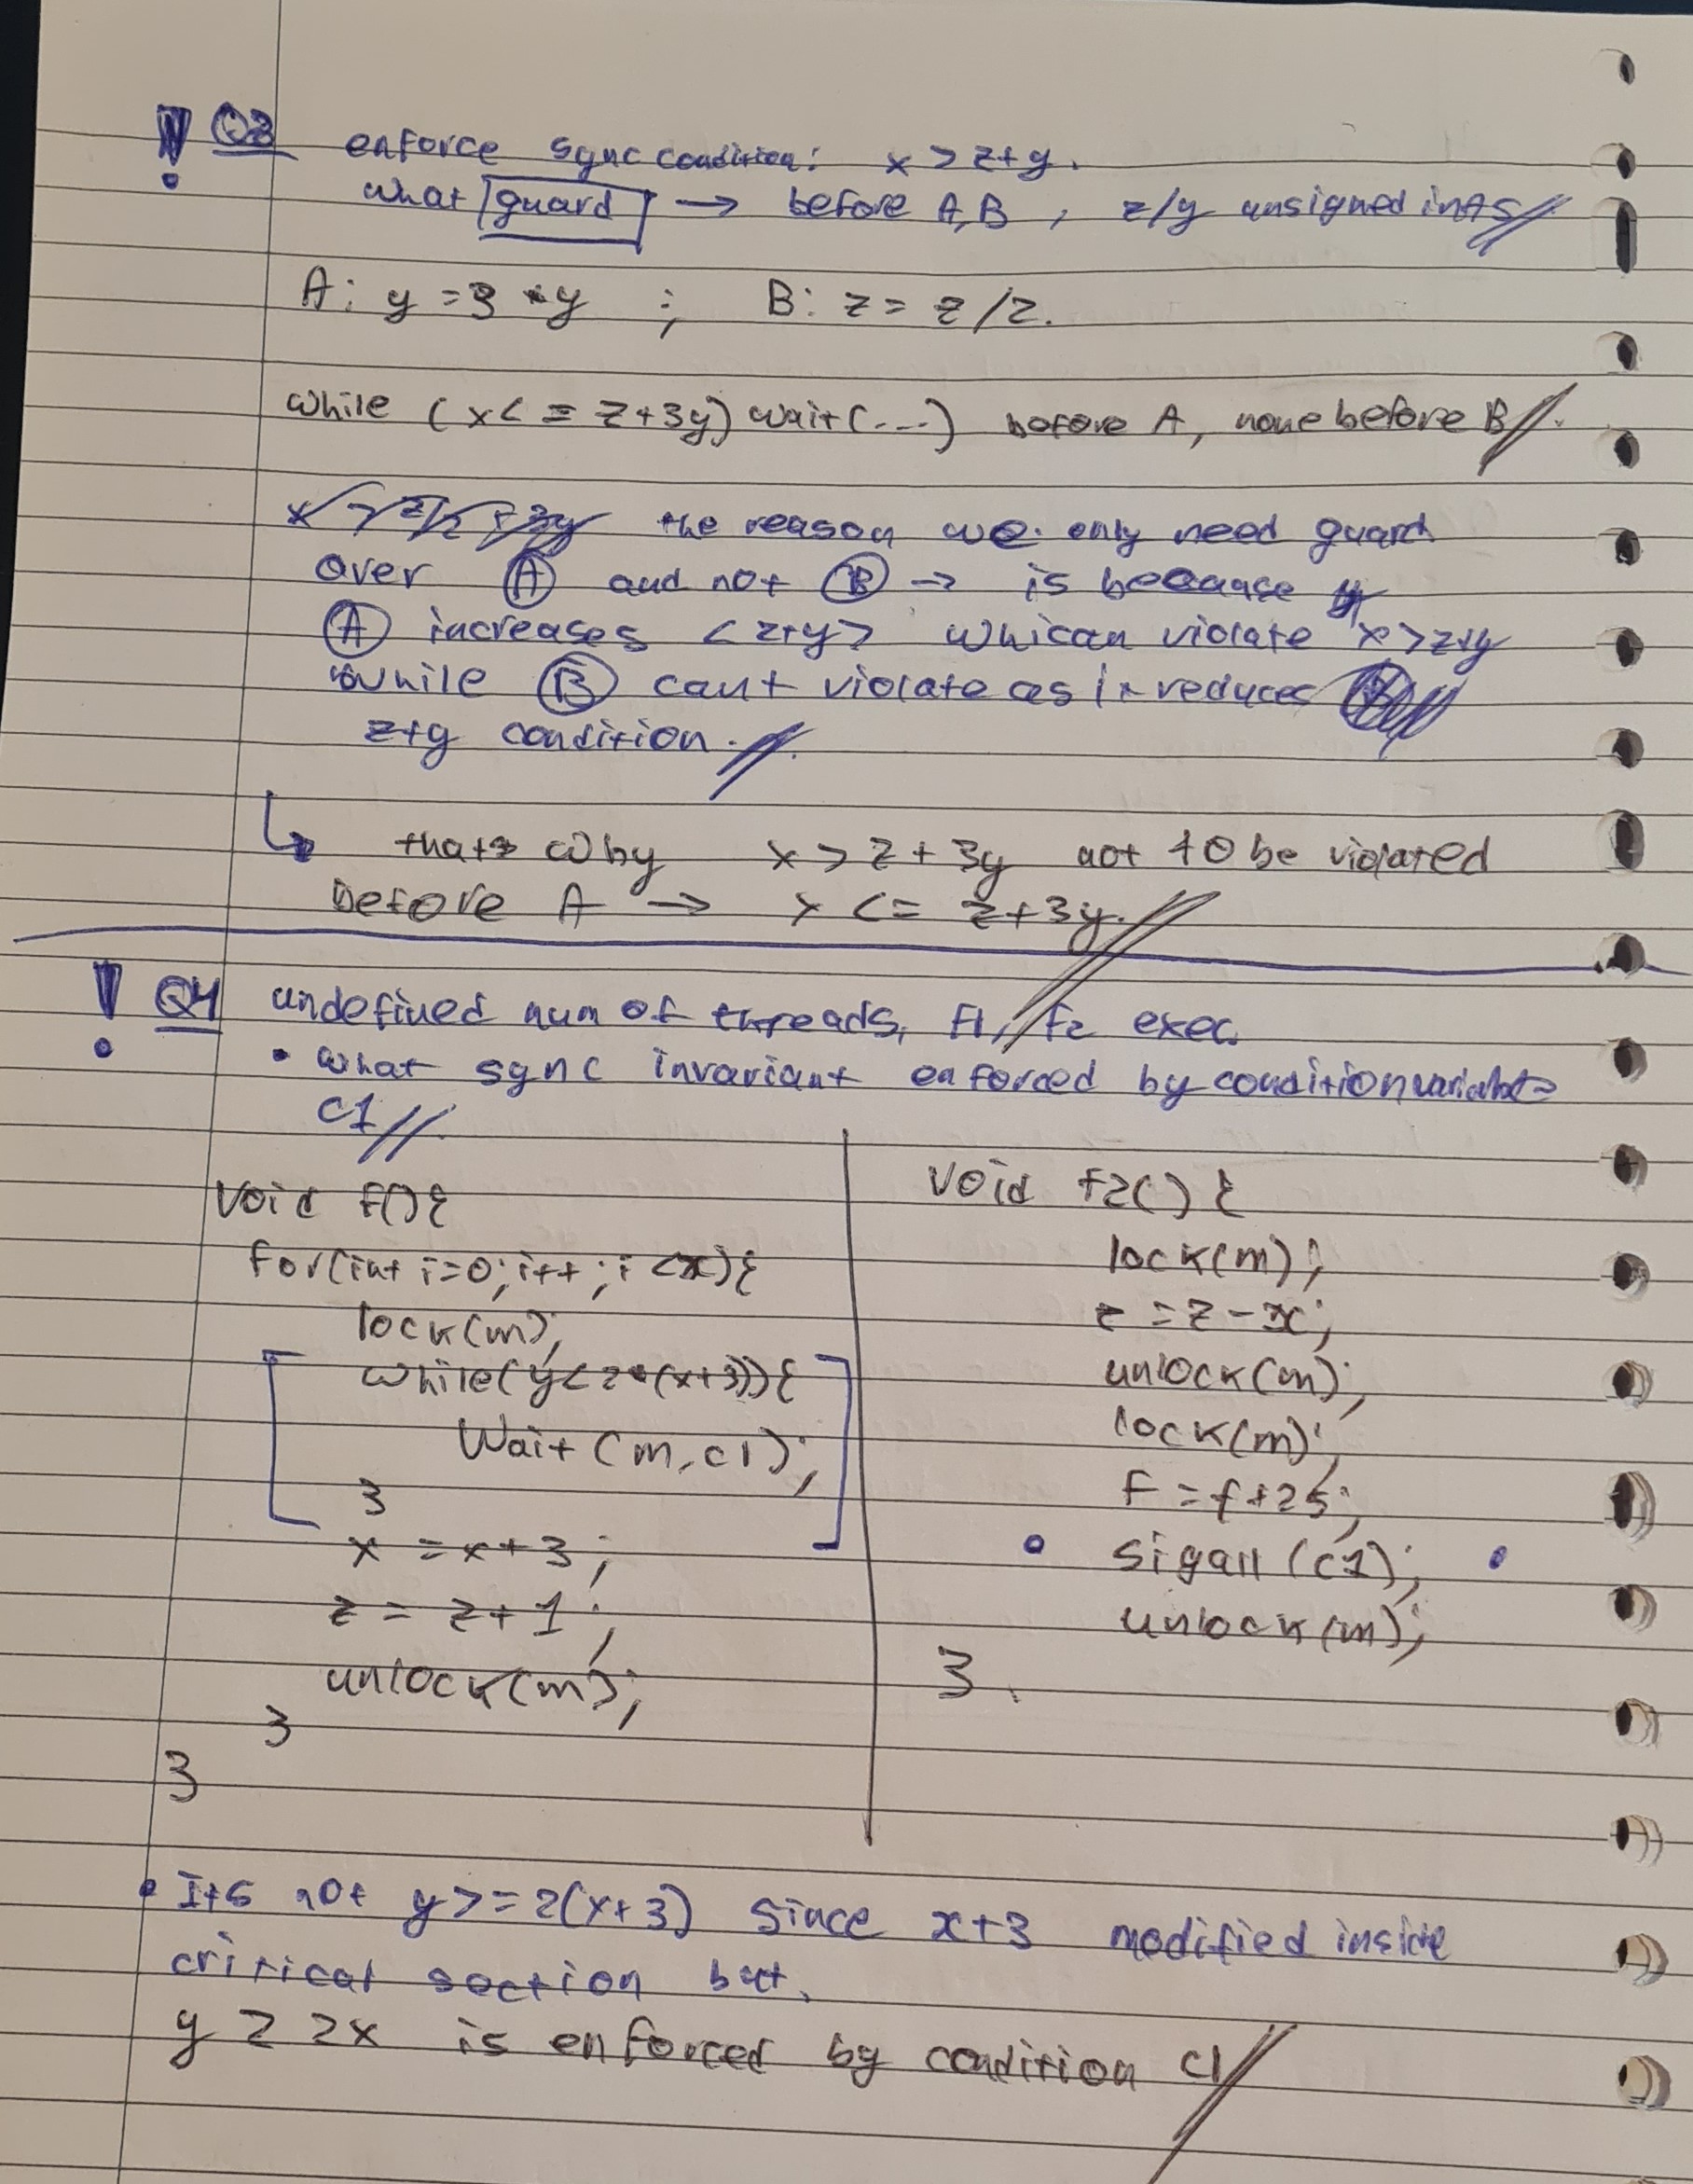 ! Q3 enforce sync condition: x > z+y.
what guard → before A,B, z/y unsigned ints
A: y = 3 * y ; B: z = z/2.
while (x <= z+3y) wait(...) before A, none before B.
the reason we only need guard
over A and not B → is because
A increases <z+y> whican violate x>z+y
while B cant violate as it reduces
z+y condition.
↳ thats why x > z + 3y not to be violated
before A → x <= z+3y.
! Q4 undefined num of threads, F1, F2 exec.
• what sync invariant enforced by condition variable
C1
void f(){
for(int i=0; i++; i <x){
lock(m);
while(y<2*(x+3)){
Wait (m,c1);
}
x = x+3;
z = z+1;
unlock(m);
}
}
void f2() {
lock(m);
z = z-x;
unlock(m);
lock(m);
F = f+25;
• sigall (c1); •
unlock(m);
}.
• Its not y>=2(x+3) since x+3 modified inside
critical section but.
y ≥ 2x is enforced by condition c1